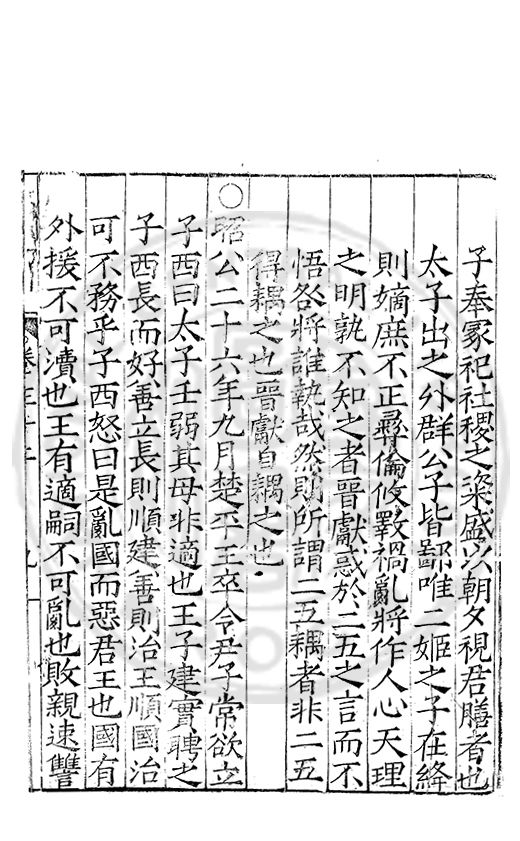 子奉冢祀社稷之粢盛以朝夕視君膳者也
太子出之外群公子皆鄙唯二姬之子在絳
則嫡庶不正彞倫攸斁禍亂將作人心天理
之明孰不知之者晉獻惑於二五之言而不
悟咎將誰執哉然則所謂二五耦者非二五
得耦之也晉獻自耦之也
○昭公二十六年九月楚平王卒令尹子常欲立
子西曰太子壬弱其母非適也王子建實聘之
子西長而好善立長則順建善則治王順國治
可不務乎子西怒曰是亂國而惡君王也國有
外援不可瀆也王有適嗣不可亂也敗親速讐
卷三十二 九